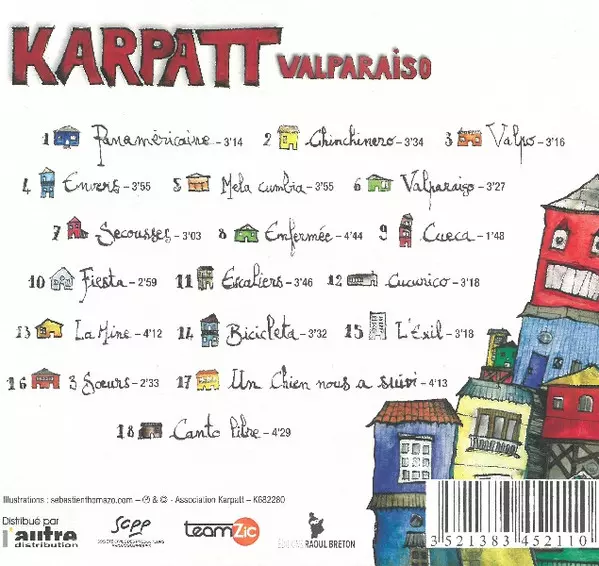 KARPATT VALPARAISO
1 Panaméricaine – 3'14 2 Chinchinero – 3'34 3 Valpo – 3'16
4 Envers – 3'55 5 Mela cumbia – 3'55 6 Valparaiso – 3'27
7 Secousses – 3'03 8 Enfermée – 4'44 9 Cueca – 1'48
10 Fiesta – 2'59 11 Escaliers – 3'46 12 Cucurico – 3'18
13 La Mine – 4'12 14 Bicicleta – 3'32 15 L'Exil – 3'18
16 3 Sœurs – 2'33 17 Un Chien nous a suivi – 4'13
18 Canto libre – 4'29
Illustrations : sebastienthomazo.com – ℗ & © - Association Karpatt – K682280
Distribué par l'autre distribution
SCPP
teamZic
ÉDITIONS RAOUL BRETON
3 521383 452110